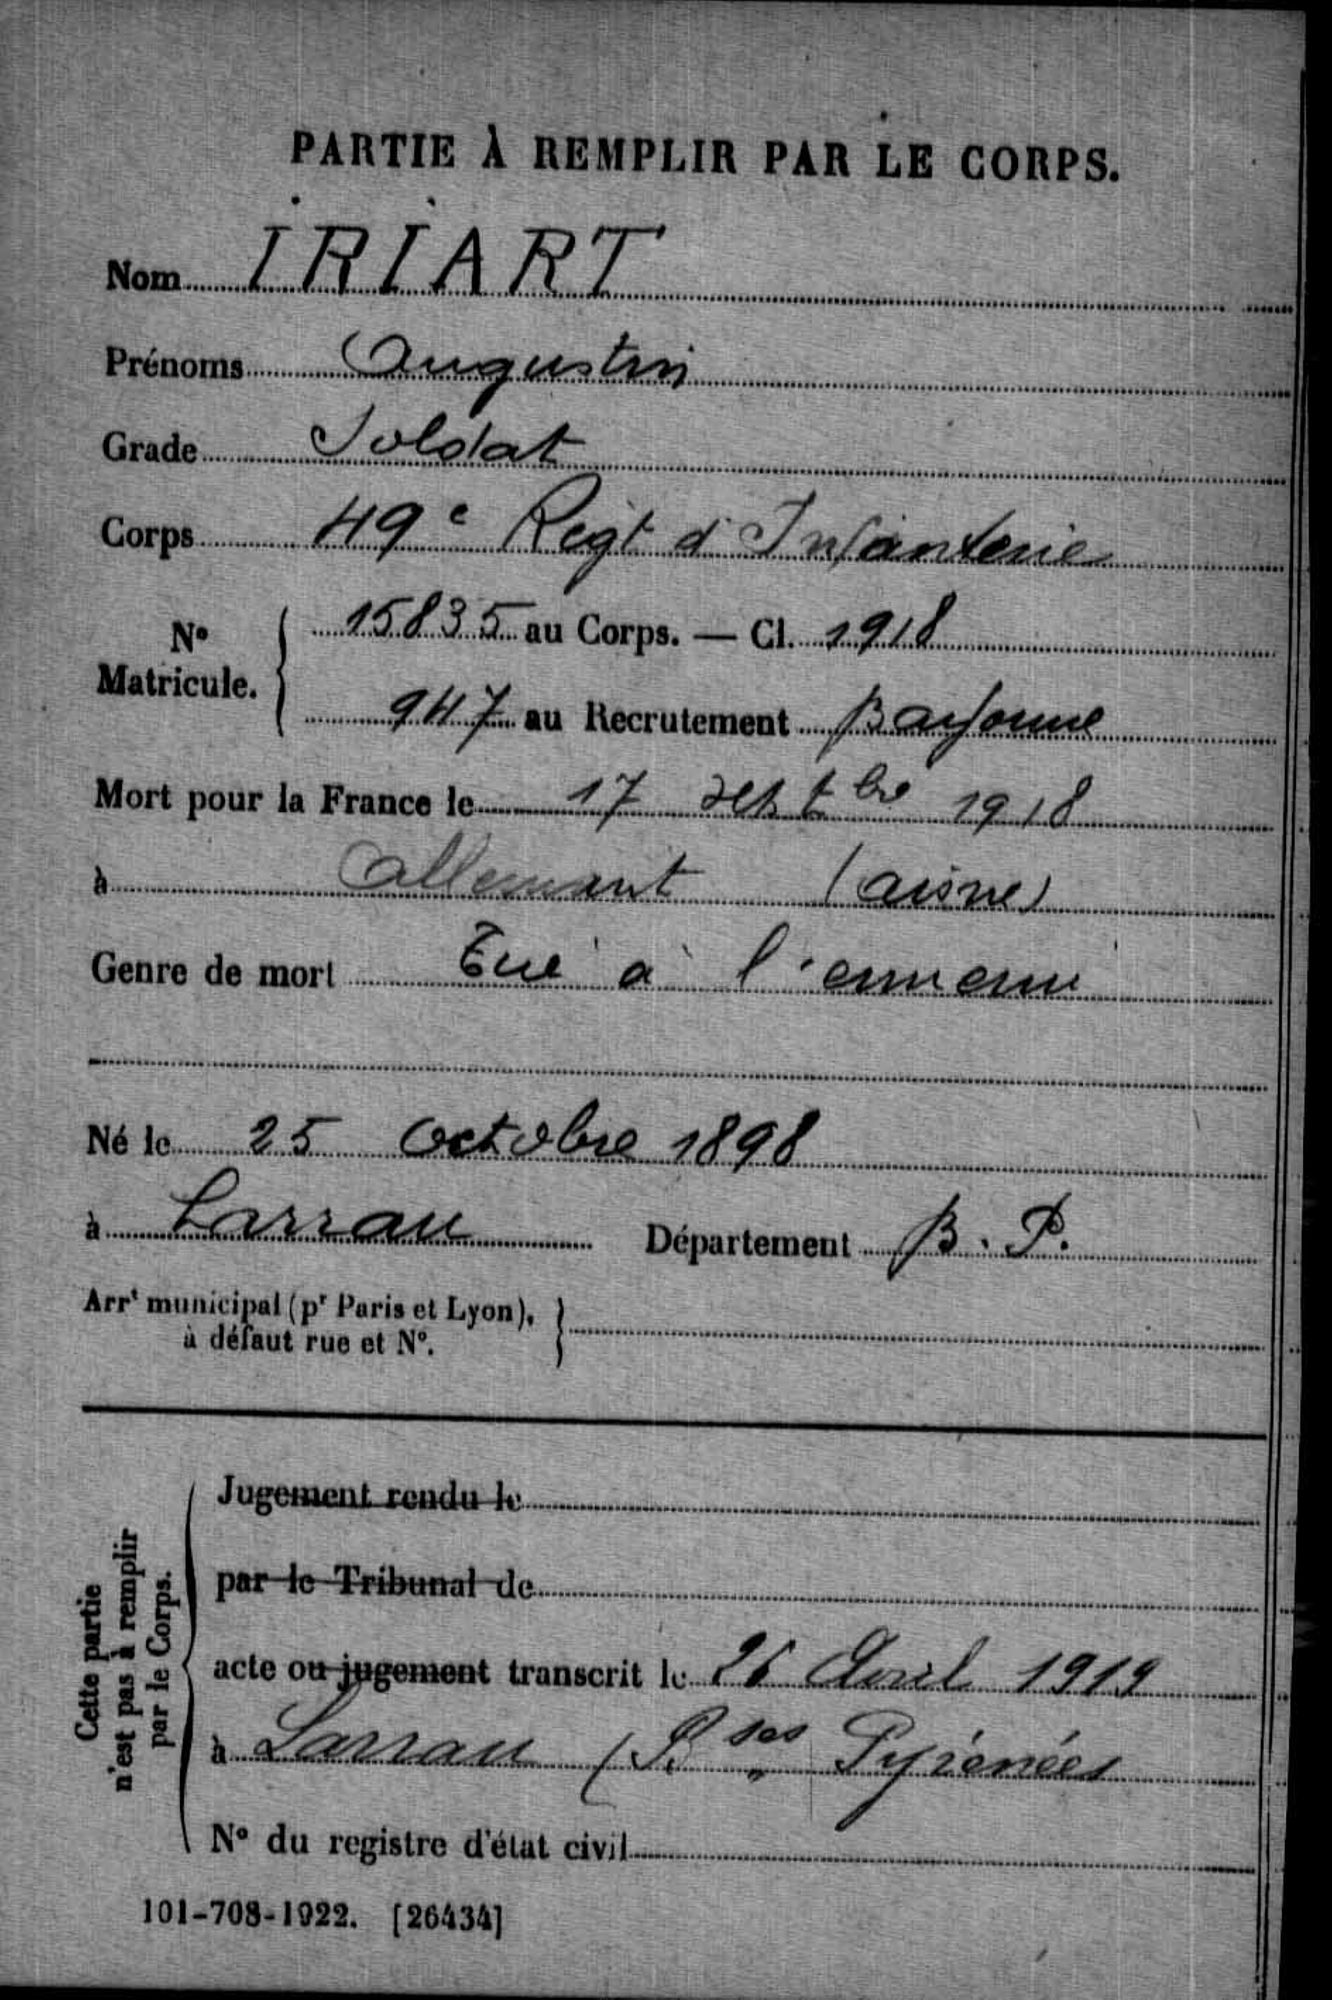 PARTIE À REMPLIR PAR LE CORPS.
Nom IRIART
Prénoms Augustin
Grade Soldat
Corps 49e Regt d'Infanterie
No Matricule. 15835 au Corps. — Cl. 1918
947 au Recrutement Bayonne
Mort pour la France le 17 septbre 1918
à Allemant (aisne)
Genre de mort Tué à l'ennemi
Né le 25 Octobre 1898
à Larrau Département B. P.
Arrt municipal (pr Paris et Lyon),
à défaut rue et No.
Cette partie
n'est pas à remplir
par le Corps.
Jugement rendu le
par le Tribunal de
acte ou jugement transcrit le 26 Avril 1919
à Larrau (Bses Pyrénées
No du registre d'état civil
101-708-1922. [26434]